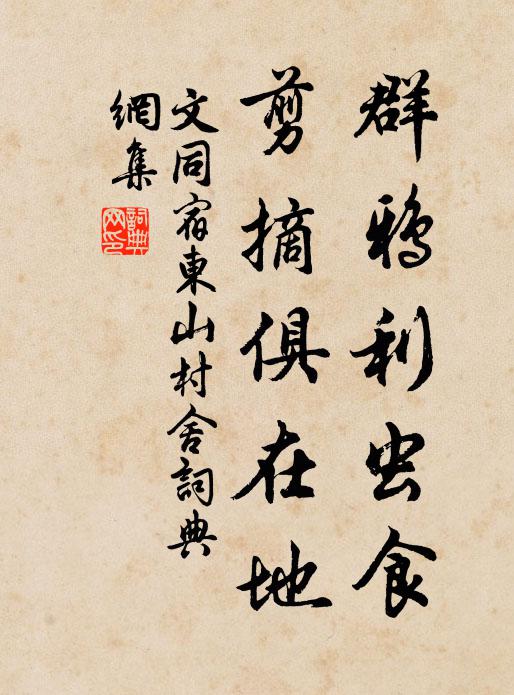 群鴉利虫食
剪摘俱在地
文同宿東山村舍詞典
網集
詞典
网印